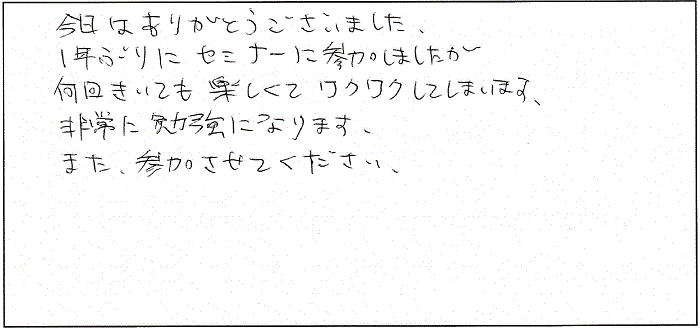 今日はありがとうございました、
1年ぶりに セミナーに参加しましたが
何回きいても 楽しくて ワクワクしてしまいます、
非常に 勉強になります、
また、参加させてください、